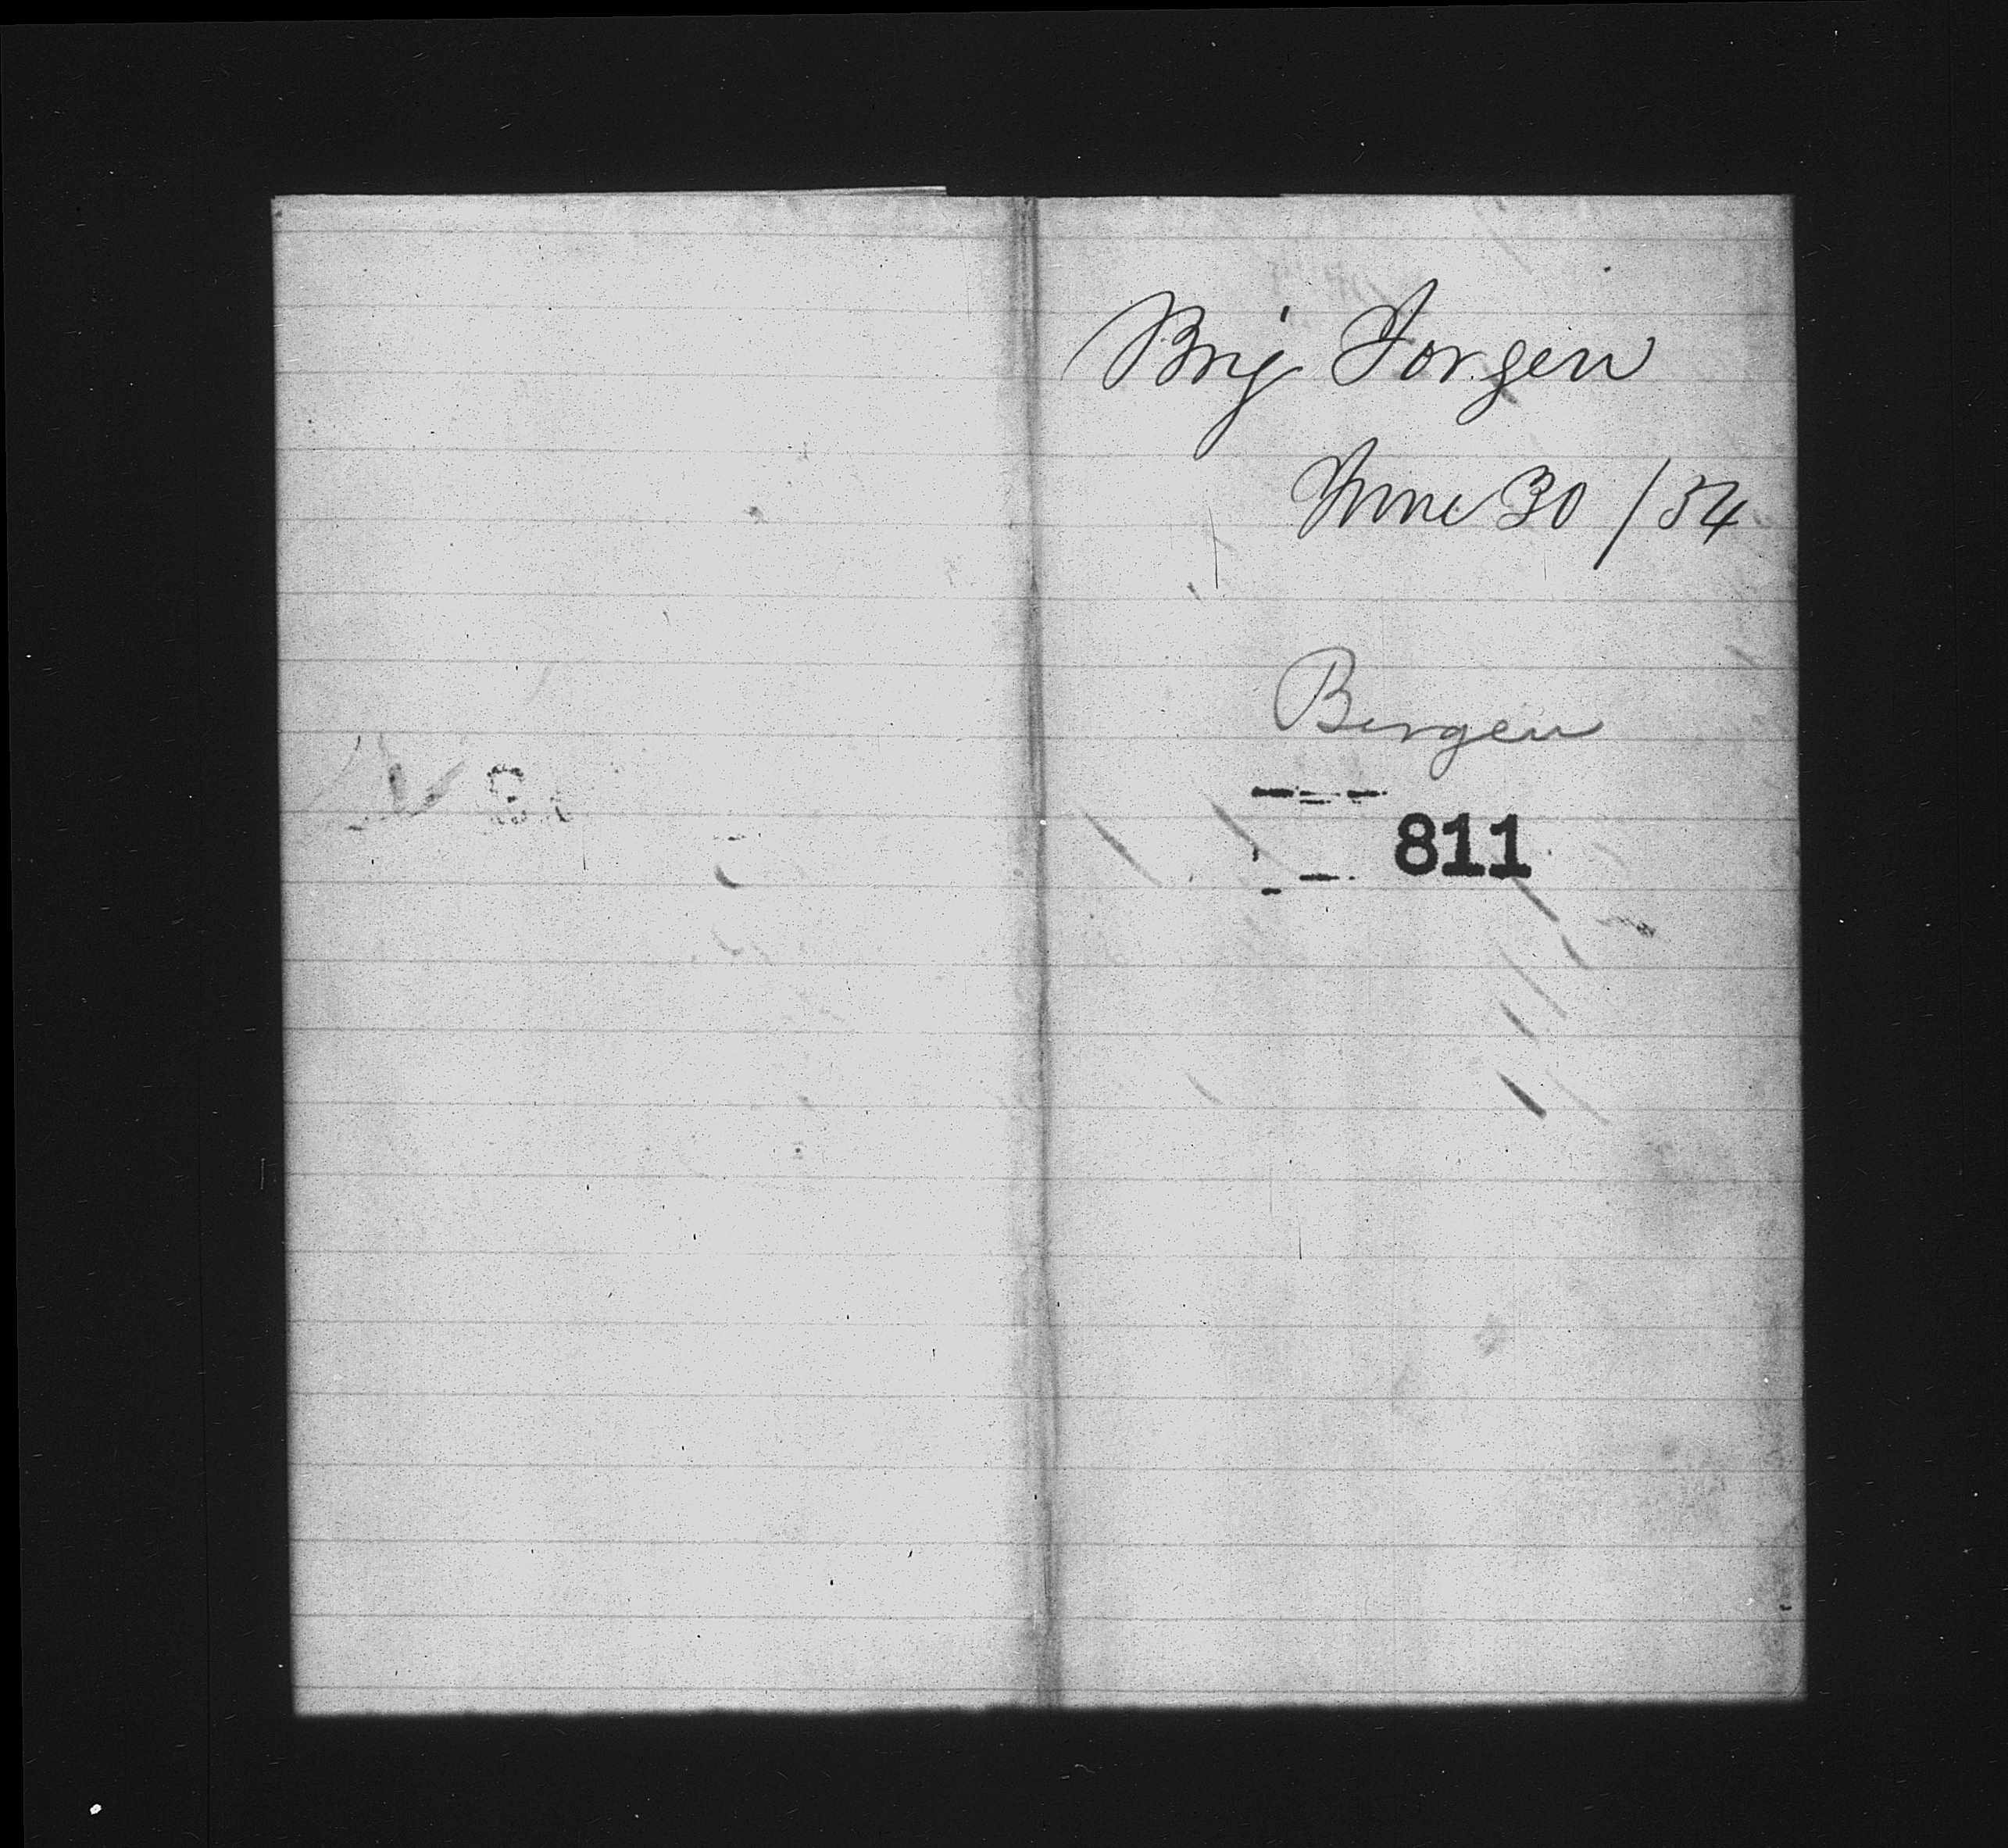 Brig Jorgen
June 30 / 54
Bergen
811